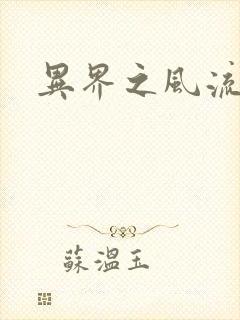 異界之風流
蘇溫玉